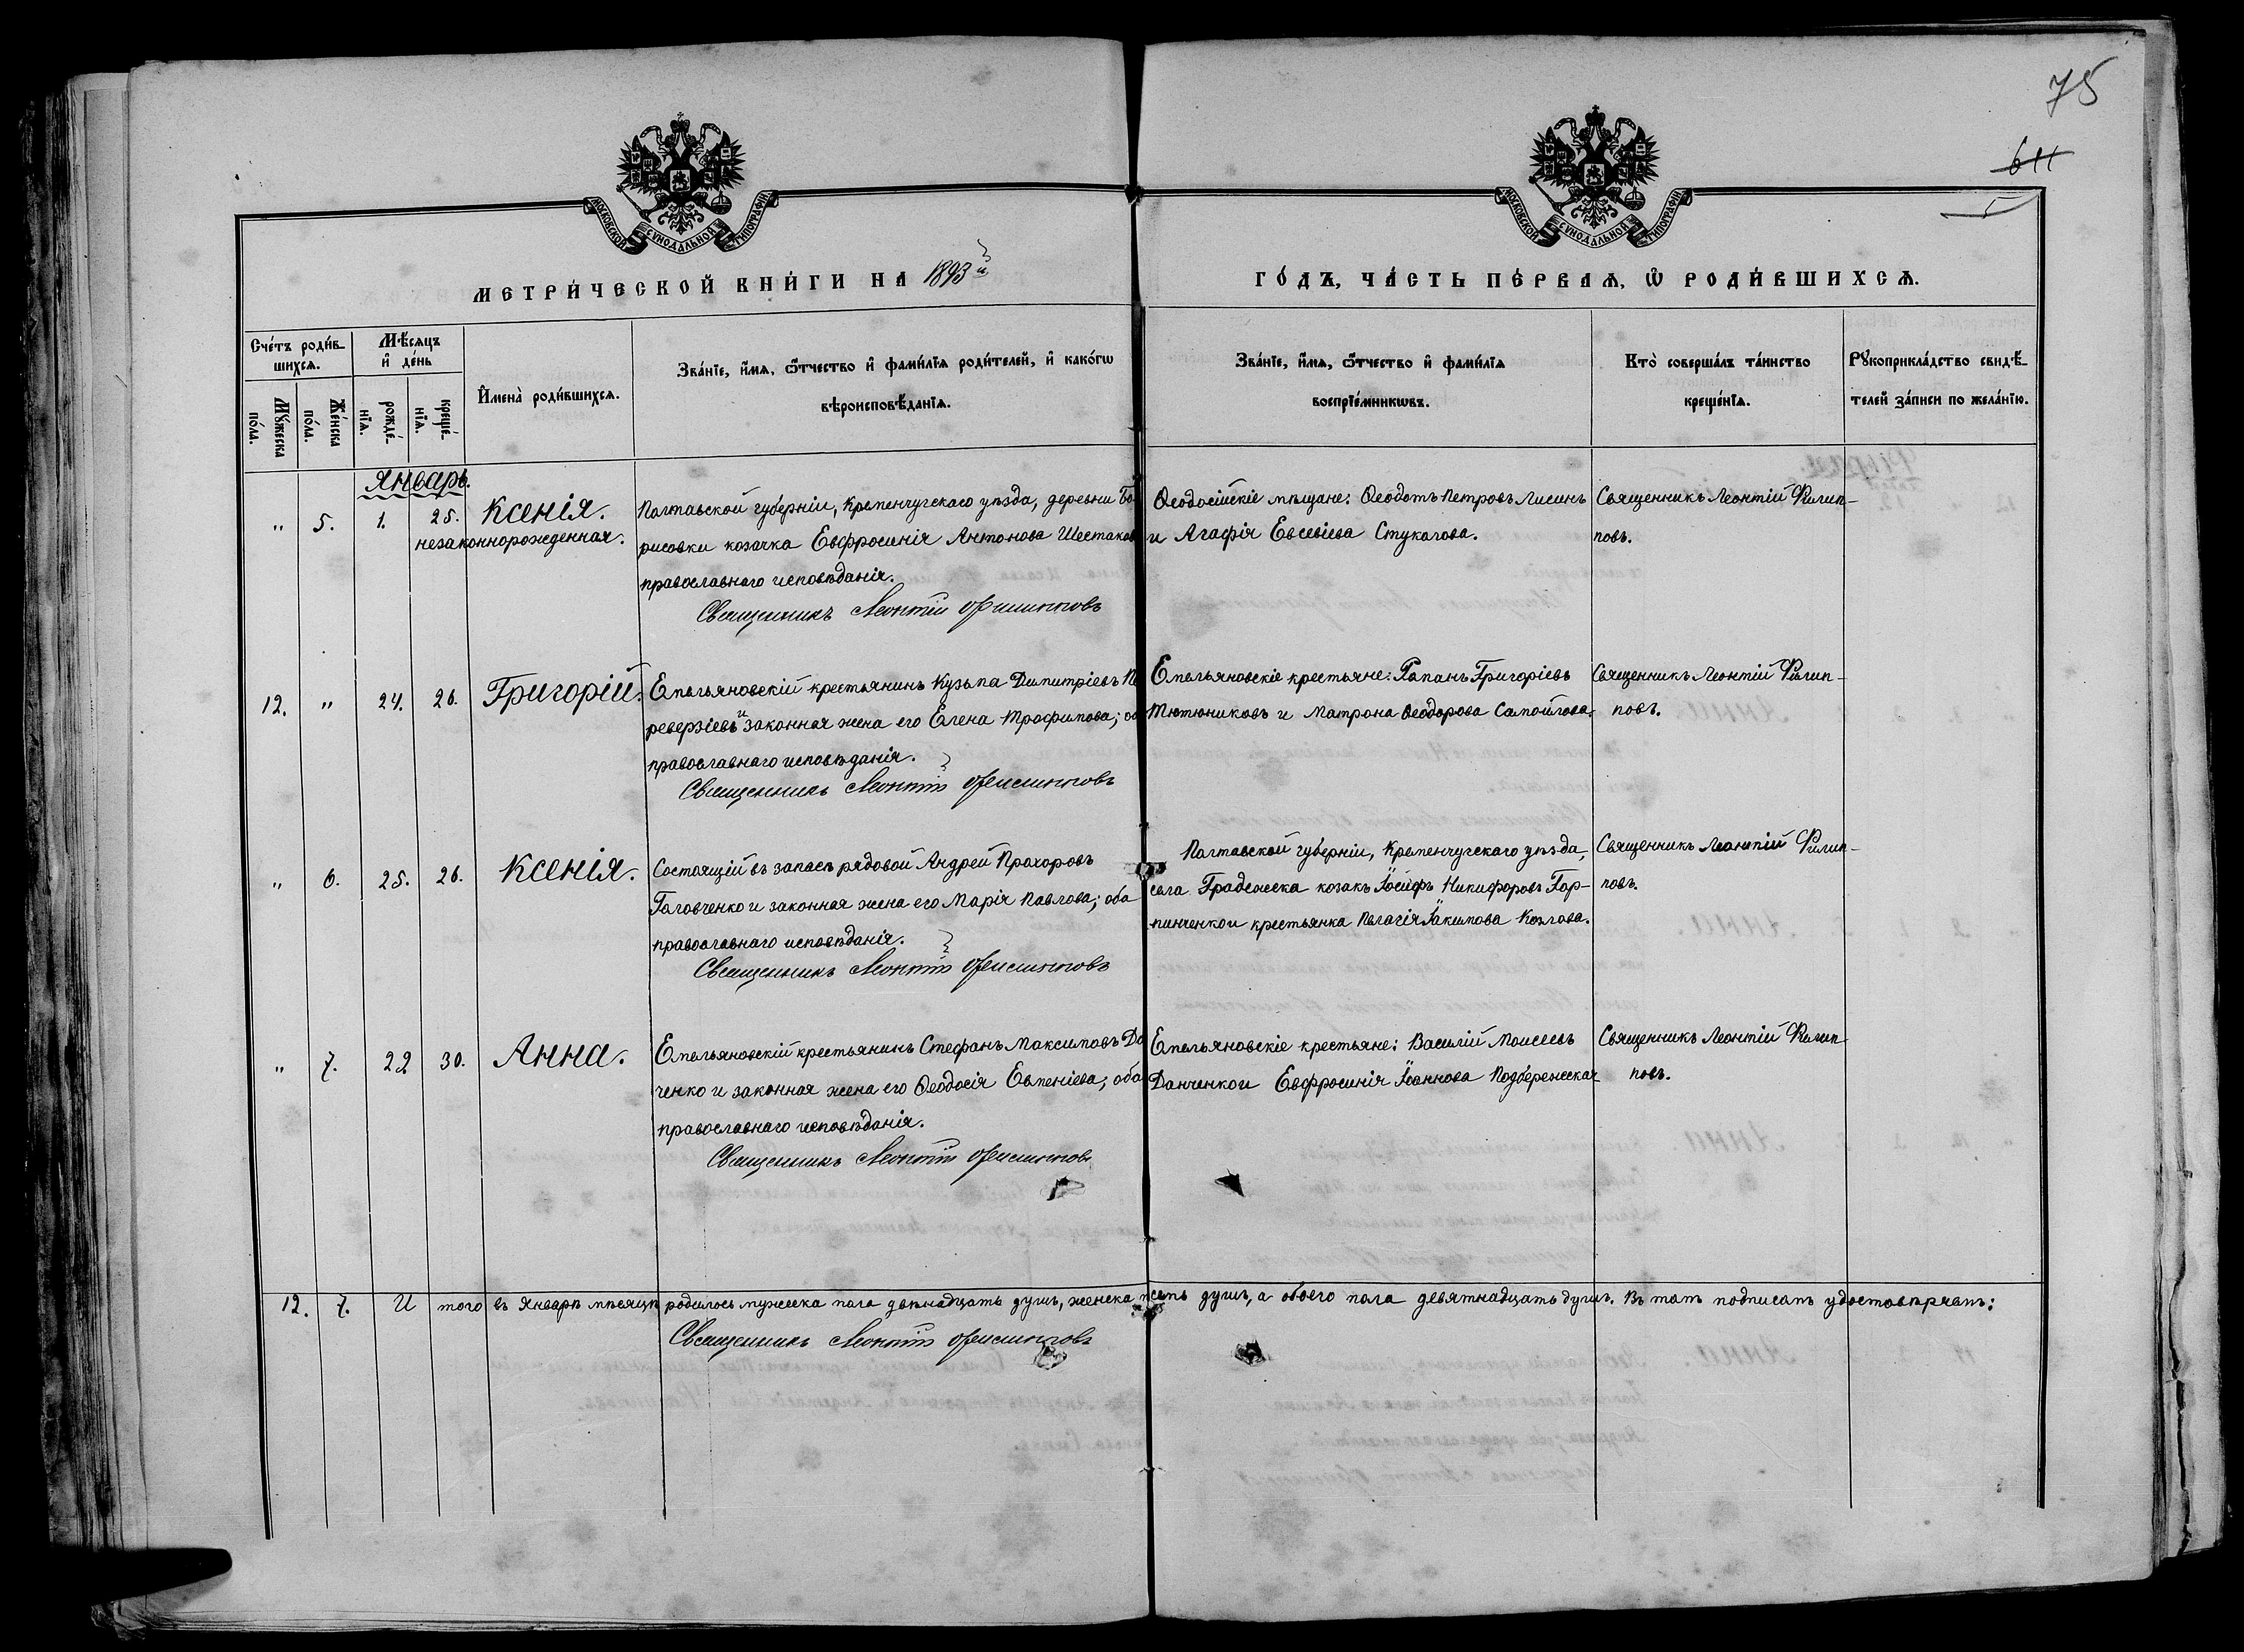 75
611
5
МОСКОВСКОЙ СѴНОДАЛЬНОЙ ТИПОГРАФІИ
МОСКОВСКОЙ СѴНОДАЛЬНОЙ ТИПОГРАФІИ
МЕТРИ́ЧЕСКОЙ КНИ́ГИ НА 1893й
ГО́ДЪ, ЧА́СТЬ ПЕ́РВАѦ, Ѿ РОДИ́ВШИХСѦ.
Сче́тъ роди́в-
шихсѧ.
Мꙋ́жеска
по́ла.
Же́нска
по́ла.
Мѣ́сѧцъ
и҆ де́нь
рожде́-
нїѧ.
креще́-
нїѧ.
И҆мена̀ роди́вшихсѧ.
Зва́нїе, и҆́мѧ, ѻ҆́тчество и҆ фами́лїѧ роди́телей, и҆ како́гѡ
вѣроисповѣ́данїѧ.
Зва́нїе, и҆́мѧ, ѻ҆́тчество и҆ фами́лїѧ
воспрїе́мникѡвъ.
Кто̀ соверша́лъ та́инство
креще́нїѧ.
Рꙋкоприкла́дство свидѣ́-
телей за́писи по жела́нїю.
Январь.
" 5. 1. 25. Ксенія.
незаконнорожденная.
Полтавской губерніи, Кременчугскаго уѣзда, деревни Бо
рисовки козачка Евфросинія Антонова Шестаков
православнаго исповѣданія.
Священникъ Леонтій Филипповъ
Ѳеодосійскіе мѣщане: Ѳеодотъ Петровъ Лисинъ
и Агафія Евсевіева Стукалова.
Священникъ Леонтій Филип-
повъ.
12. " 24. 26. Григорій.
Емельяновскій крестьянинъ Кузьма Димитріевъ Пе
реверзіевъ и законная жена его Елена Трофимова; об
православнаго исповѣданія.
Священникъ Леонтій Филипповъ
Емельяновскіе крестьяне: Григоріевъ
Тютюниковъ и Матрона Ѳеодорова Самойлова.
Священникъ Леонтій Филип-
повъ.
" 6. 25. 26. Ксенія.
Состоящій въ запасѣ рядовой Андрей Прохоровъ
Головченко и законная жена его Марія Павлова; оба
православнаго исповѣданія.
Священникъ Леонтій Филипповъ
Полтавской губерніи, Кременчугскаго уѣзда,
села Градежска козакъ Іосифъ Никифоровъ Гор-
пинченко и крестьянка Пелагія Іакимова Козлова.
Священникъ Леонтій Филип-
повъ.
" 7. 22 30. Анна.
Емельяновскій крестьянинъ Стефанъ Максимовъ До
ченко и законная жена его Ѳеодосія Евменіева; оба
православнаго исповѣданія.
Священникъ Леонтій Филипповъ
Емельяновскіе крестьяне: Василій Моисеевъ
Данченко и Евфросинія Іоаннова Подбережская
Священникъ Леонтій Филип-
повъ.
12. 7. И того въ Январѣ мѣсяцѣ родилось мужеска пола двѣнадцать душъ, женска семь душъ, а обоего пола девятнадцать душъ. Въ томъ подписомъ удостовѣряемъ:
Священникъ Леонтій Филипповъ